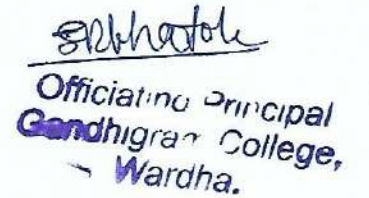 Officiating Principal
Gandhigram College,
Wardha.